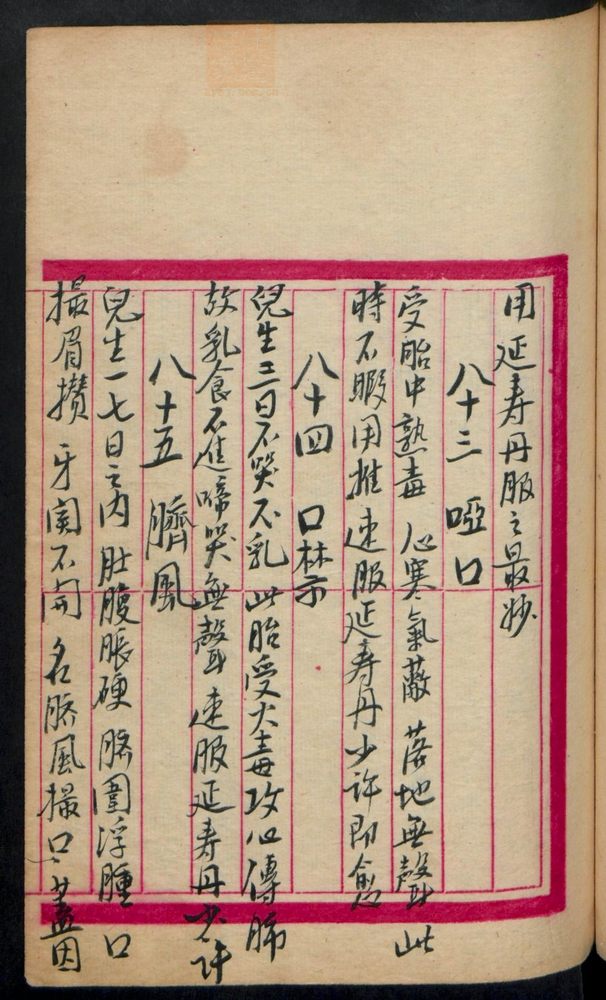 用延寿丹服之最妙
八十三 啞口
受胎中熟毒 心寒氣蔽 落地無聲 此
時不暇用推 速服延寿丹少許即愈
八十四 口禁
兒生三日不哭不乳 此胎受火毒攻心傳肺
故乳食不進啼哭無聲 速服延寿丹少許
八十五 臍風
兒生一七日之内 肚腹脹硬 臍圍浮腫 口
撮眉攅 牙関不開 名臍風撮口 蓋因